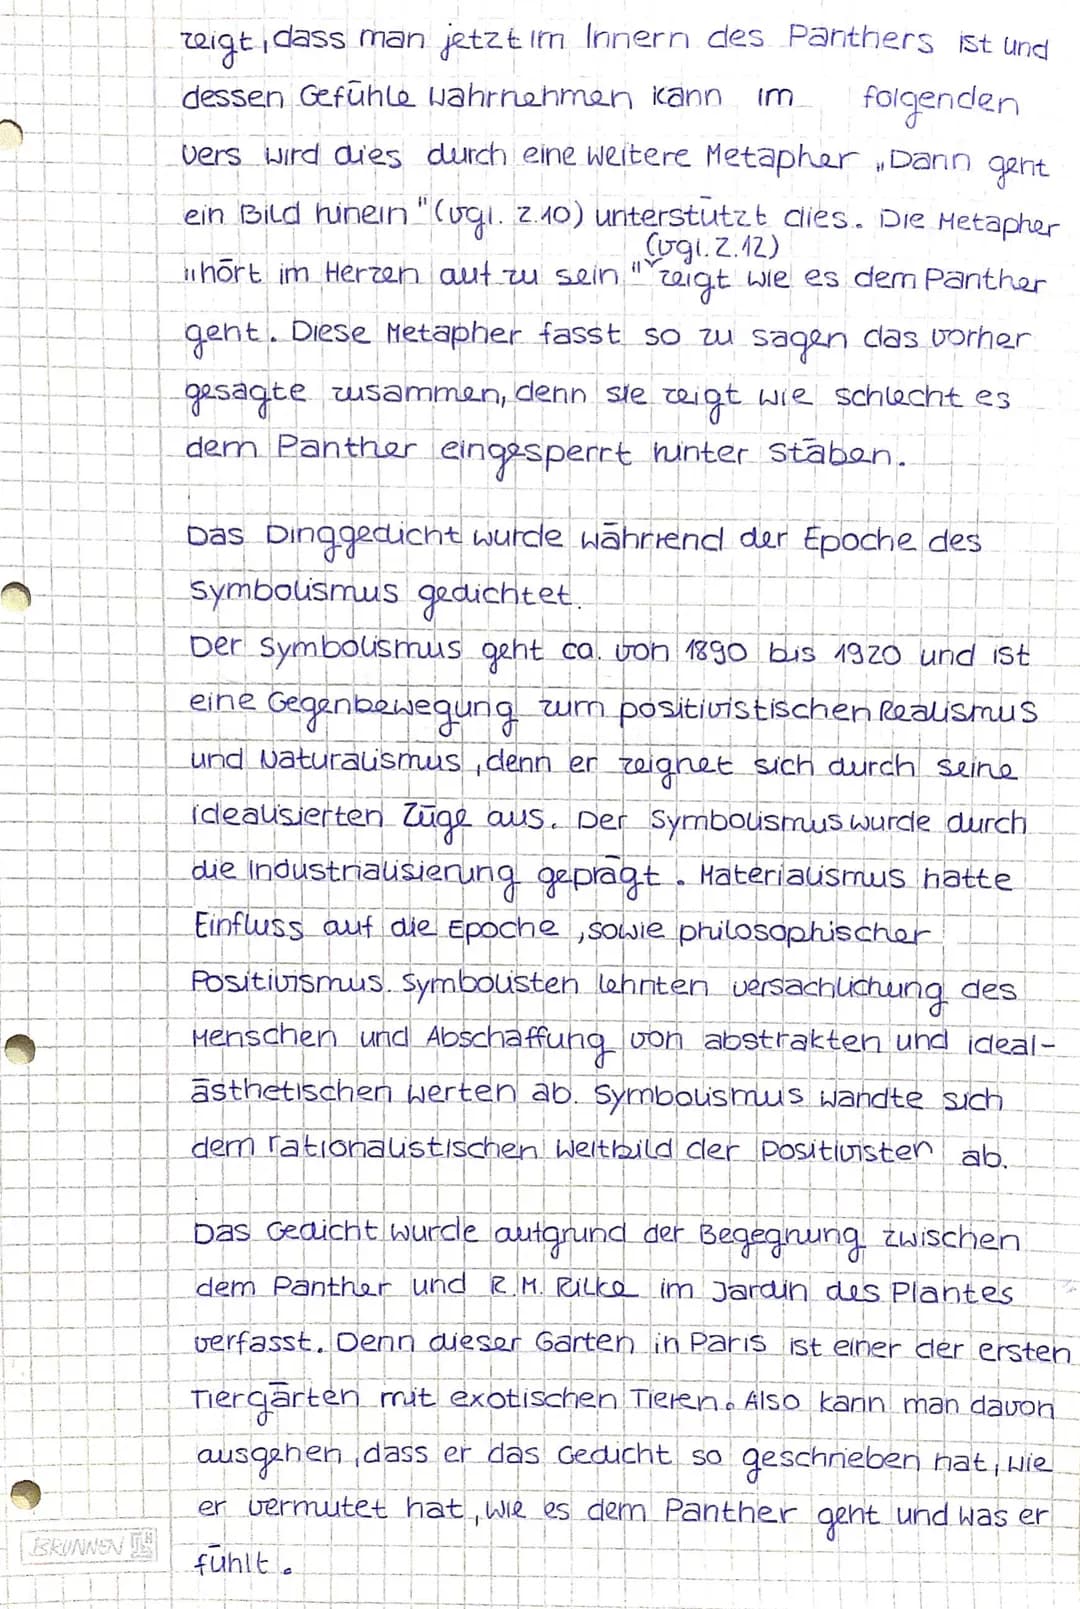 zeigt, dass man jetzt im Innern des Panthers ist und
dessen Gefühle wahrnehmen kann im folgenden
Vers wird dies durch eine weitere Metapher „Dann geht
ein Bild hinein" (vgl. Z.10) unterstützt dies. Die Metapher
(vgl. Z.12)
„hört im Herzen auf zu sein" zeigt wie es dem Panther
geht. Diese Metapher fasst so zu sagen das vorher
gesagte zusammen, denn sie zeigt wie schlecht es
dem Panther eingesperrt hinter Stäben.
Das Dinggedicht wurde während der Epoche des
Symbolismus gedichtet.
Der Symbolismus geht ca. von 1890 bis 1920 und ist
eine Gegenbewegung zum positivistischen Realismus
und Naturalismus, denn er zeignet sich durch seine
idealisierten Züge aus. Der Symbolismus wurde durch
die Industrialisierung geprägt. Materialismus hatte
Einfluss auf die Epoche, sowie philosophischer
Positivismus. Symbolisten lehnten Versachlichung des
Menschen und Abschaffung von abstrakten und ideal-
ästhetischen Werten ab. Symbolismus wandte sich
dem rationalistischen Weltbild der Positivisten ab.
Das Gedicht wurde aufgrund der Begegnung zwischen
dem Panther und R.M. Rilke im Jardin des Plantes
verfasst. Denn dieser Garten in Paris ist einer der ersten
Tiergärten mit exotischen Tieren. Also kann man davon
ausgehen, dass er das Gedicht so geschrieben hat, wie
er vermutet hat, wie es dem Panther geht und was er
BRUNNEN
fühlt.